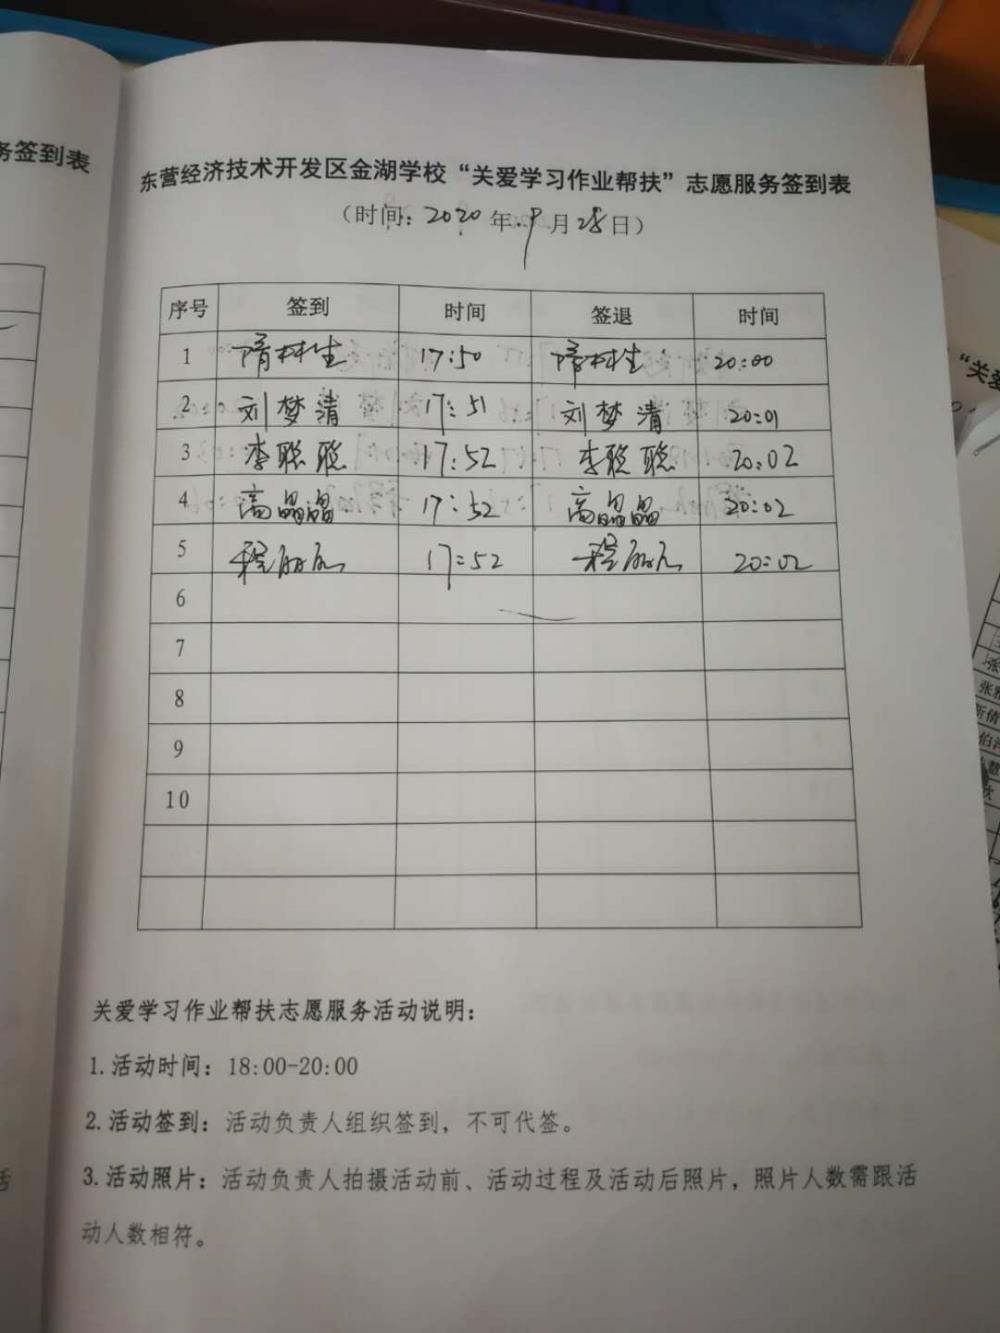 务签到表
东营经济技术开发区金湖学校“关爱学习作业帮扶”志愿服务签到表
（时间：2020年.9月28日）
序号 签到 时间 签退 时间
1 隋林生 17:50 隋林生 20:00
2 刘梦清 17:51 刘梦清 20:01
3 李聪聪 17:52 李聪聪 20:02
4 高晶晶 17:52 高晶晶 20:02
5 程 17:52 程 20:02
6
7
8
9
10
关爱学习作业帮扶志愿服务活动说明：
1.活动时间：18:00-20:00
2.活动签到：活动负责人组织签到，不可代签。
3.活动照片：活动负责人拍摄活动前、活动过程及活动后照片，照片人数需跟活
动人数相符。
“关爱